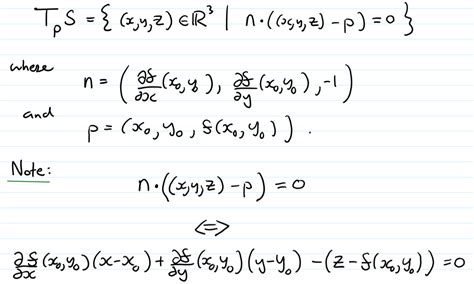 TₚS = { (x,y,z) ∈ ℝ³ | n·((x,y,z) − p) = 0 }
where
n = ( ∂f/∂x (x₀,y₀), ∂f/∂y (x₀,y₀), −1 )
and
p = (x₀, y₀, f(x₀,y₀)) .
Note:
n·((x,y,z) − p) = 0
<=>
∂f/∂x (x₀,y₀)(x−x₀) + ∂f/∂y (x₀,y₀)(y−y₀) − (z − f(x₀,y₀)) = 0